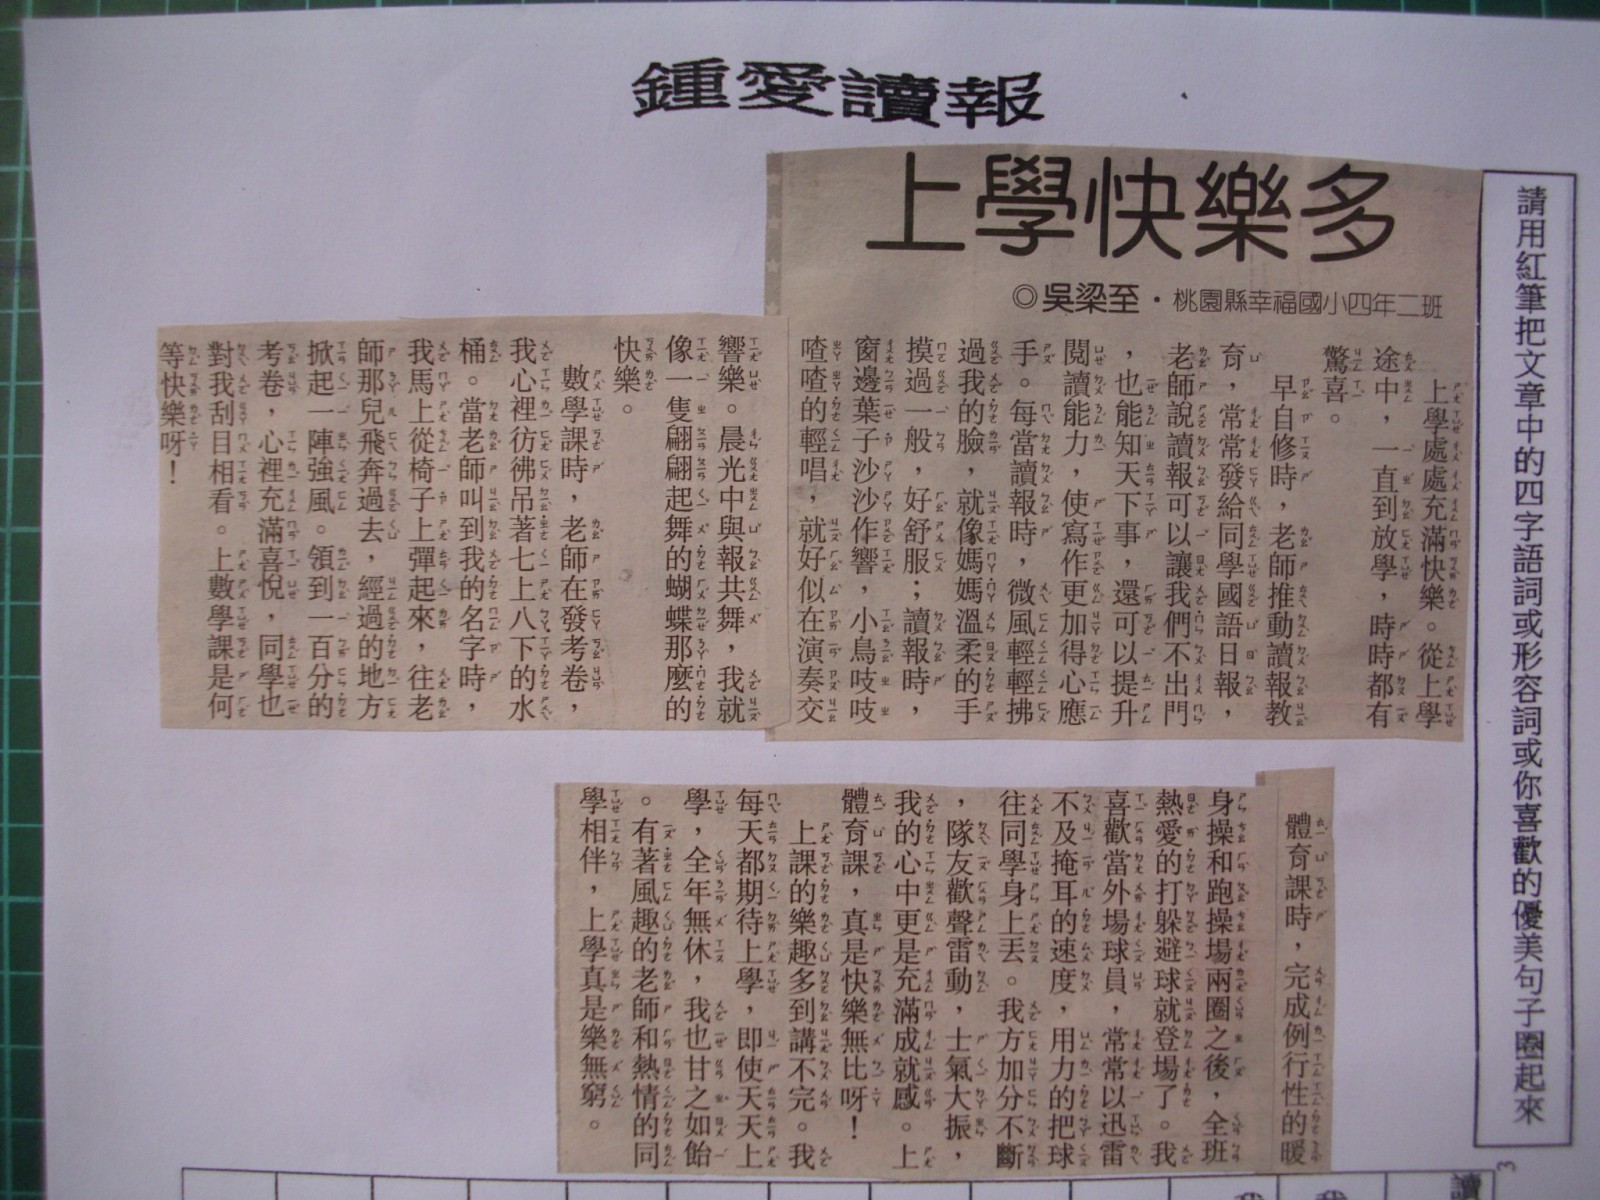 鍾愛讀報
請用紅筆把文章中的四字語詞或形容詞或你喜歡的優美句子圈起來
上學快樂多
◎吳梁至·桃園縣幸福國小四年二班
上學處處充滿快樂。從上學
途中，一直到放學，時時都有
驚喜。
早自修時，老師推動讀報教
育，常常發給同學國語日報，
老師說讀報可以讓我們不出門
，也能知天下事，還可以提升
閱讀能力，使寫作更加得心應
手。每當讀報時，微風輕輕拂
過我的臉，就像媽媽溫柔的手
摸過一般，好舒服；讀報時，
窗邊葉子沙沙作響，小鳥吱吱
喳喳的輕唱，就好似在演奏交
響樂。晨光中與報共舞，我就
像一隻翩翩起舞的蝴蝶那麼的
快樂。
數學課時，老師在發考卷，
我心裡彷彿吊著七上八下的水
桶。當老師叫到我的名字時，
我馬上從椅子上彈起來，往老
師那兒飛奔過去，經過的地方
掀起一陣強風。領到一百分的
考卷，心裡充滿喜悅，同學也
對我刮目相看。上數學課是何
等快樂呀！
體育課時，完成例行性的暖
身操和跑操場兩圈之後，全班
熱愛的打躲避球就登場了。我
喜歡當外場球員，常常以迅雷
不及掩耳的速度，用力的把球
往同學身上丟。我方加分不斷
，隊友歡聲雷動，士氣大振，
我的心中更是充滿成就感。上
體育課，真是快樂無比呀！
上課的樂趣多到講不完。我
每天都期待上學，即使天天上
學，全年無休，我也甘之如飴
。有著風趣的老師和熱情的同
學相伴，上學真是樂無窮。
3
讀